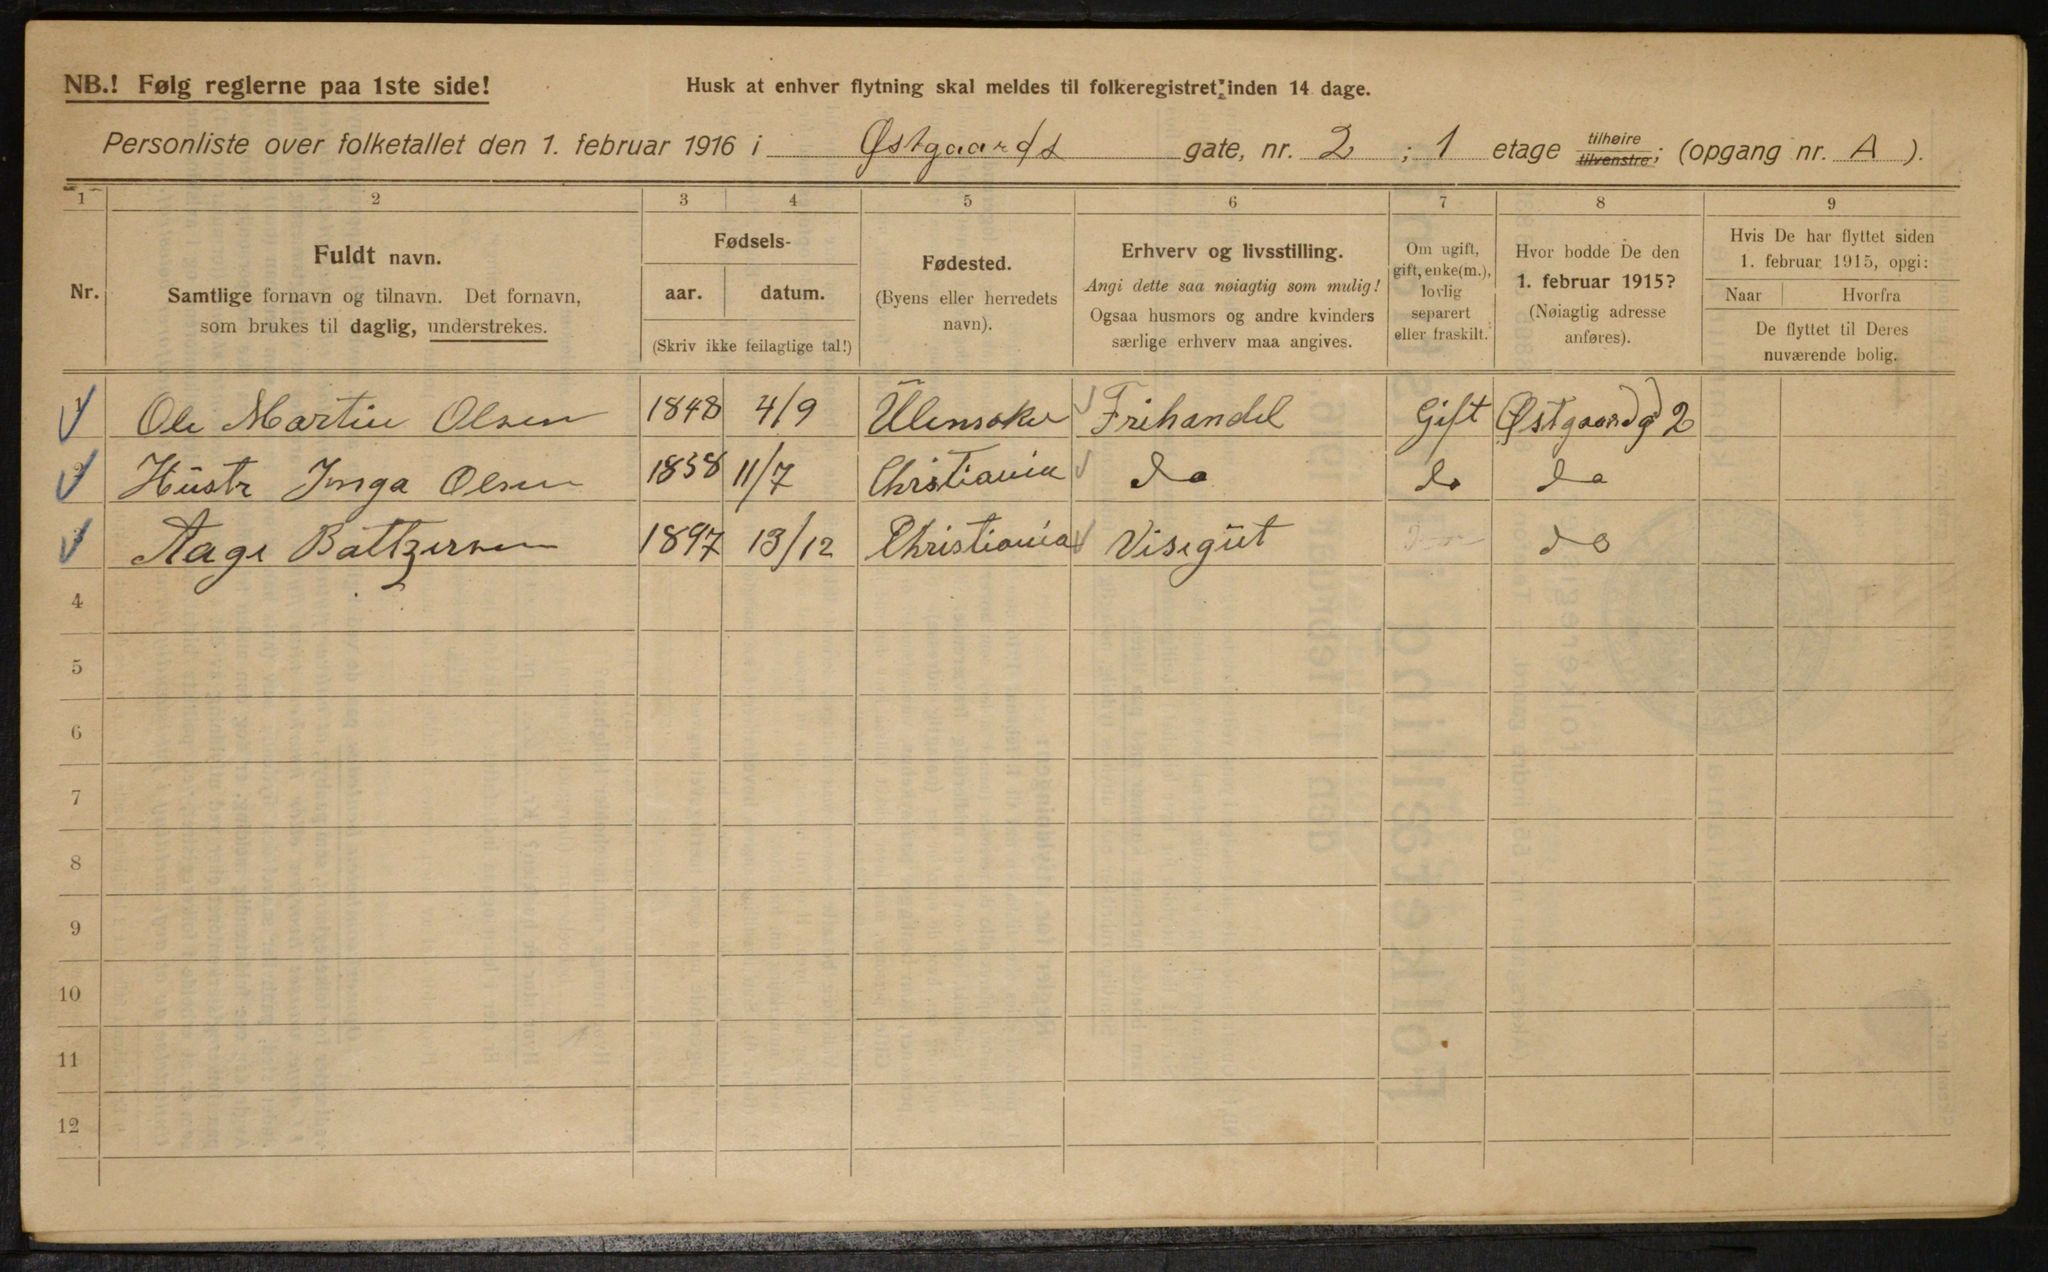 NB.! Følg reglerne paa 1ste side!
Husk at enhver flytning skal meldes til folkeregistret inden 14 dage.
Personliste over folketallet den 1. februar 1916 i Østgaards gate, nr. 2 ; 1 etage tilhøire tilvenstre; (opgang nr. A ).
1 2 3 4 5 6 7 8 9
Nr.
Fuldt navn.
Samtlige fornavn og tilnavn. Det fornavn,
som brukes til daglig, understrekes.
Fødsels-
aar. datum.
(Skriv ikke feilagtige tal!)
Fødested.
(Byens eller herredets
navn).
Erhverv og livsstilling.
Angi dette saa nøiagtig som mulig!
Ogsaa husmors og andre kvinders
særlige erhverv maa angives.
Om ugift,
gift, enke(m.),
lovlig
separert
eller fraskilt.
Hvor bodde De den
1. februar 1915?
(Nøiagtig adresse
anføres).
Hvis De har flyttet siden
1. februar 1915, opgi:
Naar Hvorfra
De flyttet til Deres
nuværende bolig.
1 Ole Martin Olsen 1848 4/9 Ullensaker Frihandel Gift Østgaardg 2
2 Hustr Inga Olsen 1858 11/7 Christiania do do do
3 Aage Baltzersen 1897 13/12 Christiania Visegut do
4
5
6
7
8
9
10
11
12